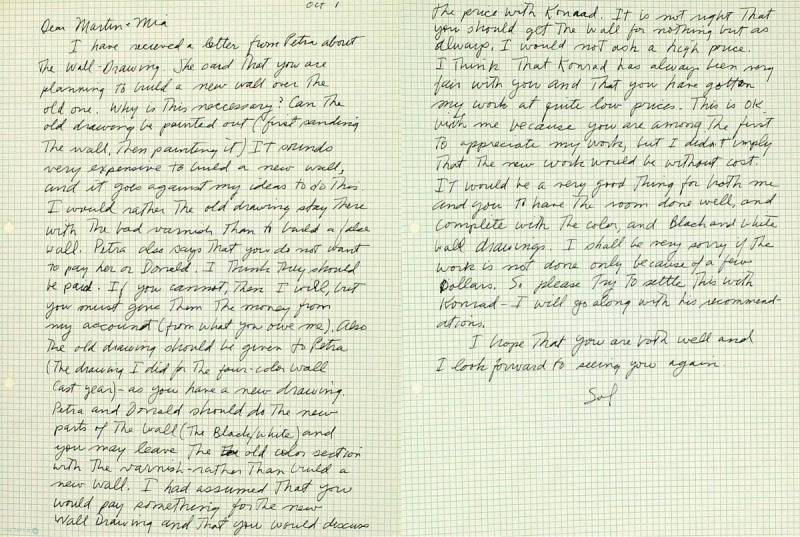 Oct 1
Dear Martin + Mia
I have recieved a letter from Petra about
The Wall-Drawing. She said That you are
planning to build a new wall over The
old one. Why is This neccessary? Can The
old drawing be painted out (first sanding
The wall, Then painting it) It sounds
very expensive to build a new wall,
and it goes against my ideas to do This.
I would rather The old drawing stay There
with The bad varnish Than to build a false
wall. Petra also says That you do not want
to pay her or Donald. I Think They should
be paid. If you cannot, Then I will, but
you must give Them The money from
my account (from what you owe me). Also
The old drawing should be given to Petra
(The drawing I did for The four-color wall
last year) - as you have a new drawing.
Petra and Donald should do The new
parts of The wall (The Black/white) and
you may leave The old color section
with The varnish - rather Than build a
new wall. I had assumed That you
would pay something for The new
Wall Drawing and That you would discuss
The price with Konrad. It is not right That
you should get The wall for nothing but as
always, I would not ask a high price.
I Think That Konrad has always been very
fair with you and That you have gotten
my work at quite low prices. This is OK
with me because you are among The first
to appreciate my work, but I didn't imply
That The new work would be without cost.
IT would be a very good Thing for both me
and you to have The room done well, and
complete with The color, and Black and White
wall drawings. I shall be very sorry if The
work is not done only because of a few
Dollars. So please Try to settle This with
Konrad - I will go along with his recommend-
ations.
I hope That you are both well and
I look forward to seeing you again.
Sol